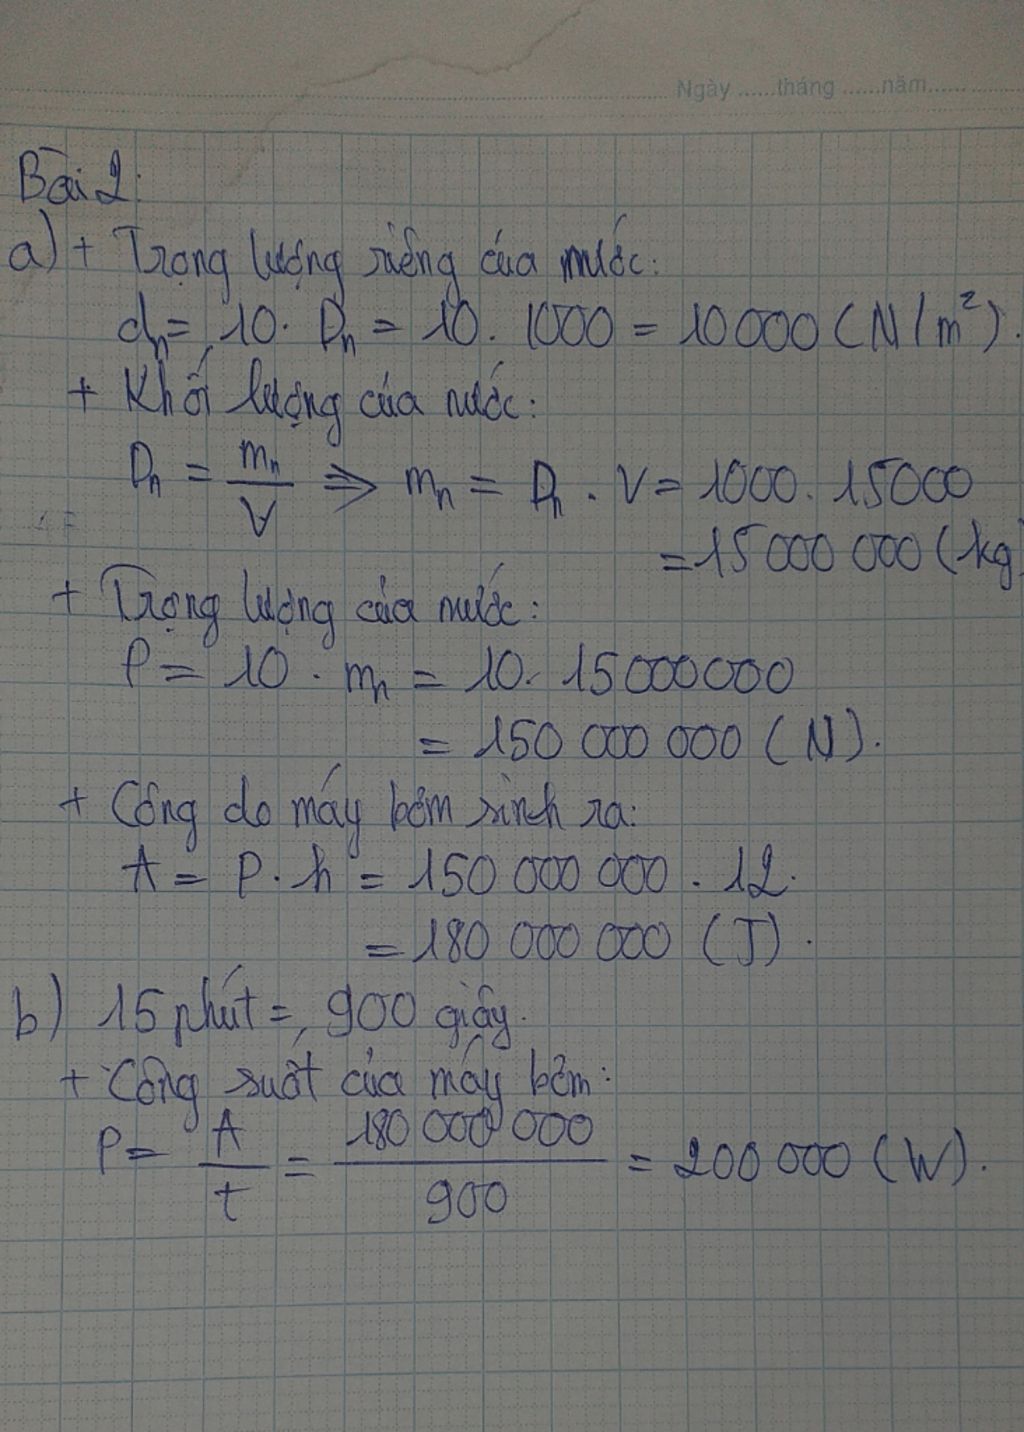 Ngày ......tháng ......năm......
Bài 2:
a) + Trọng lượng riêng của nước:
dn = 10. Dn = 10. 1000 = 10000 (N/m²).
+ Khối lượng của nước:
Dn = mn/V => mn = Dn . V = 1000. 15000
= 15 000 000 (kg)
+ Trọng lượng của nước:
P = 10 . mn = 10. 15000000
= 150 000 000 (N).
+ Công do máy bơm sinh ra:
A = P . h = 150 000 000 . 12.
= 180 000 000 (J).
b) 15 phút = 900 giây.
+ Công suất của máy bơm:
P = A/t = 180 000 000/900 = 200 000 (W).